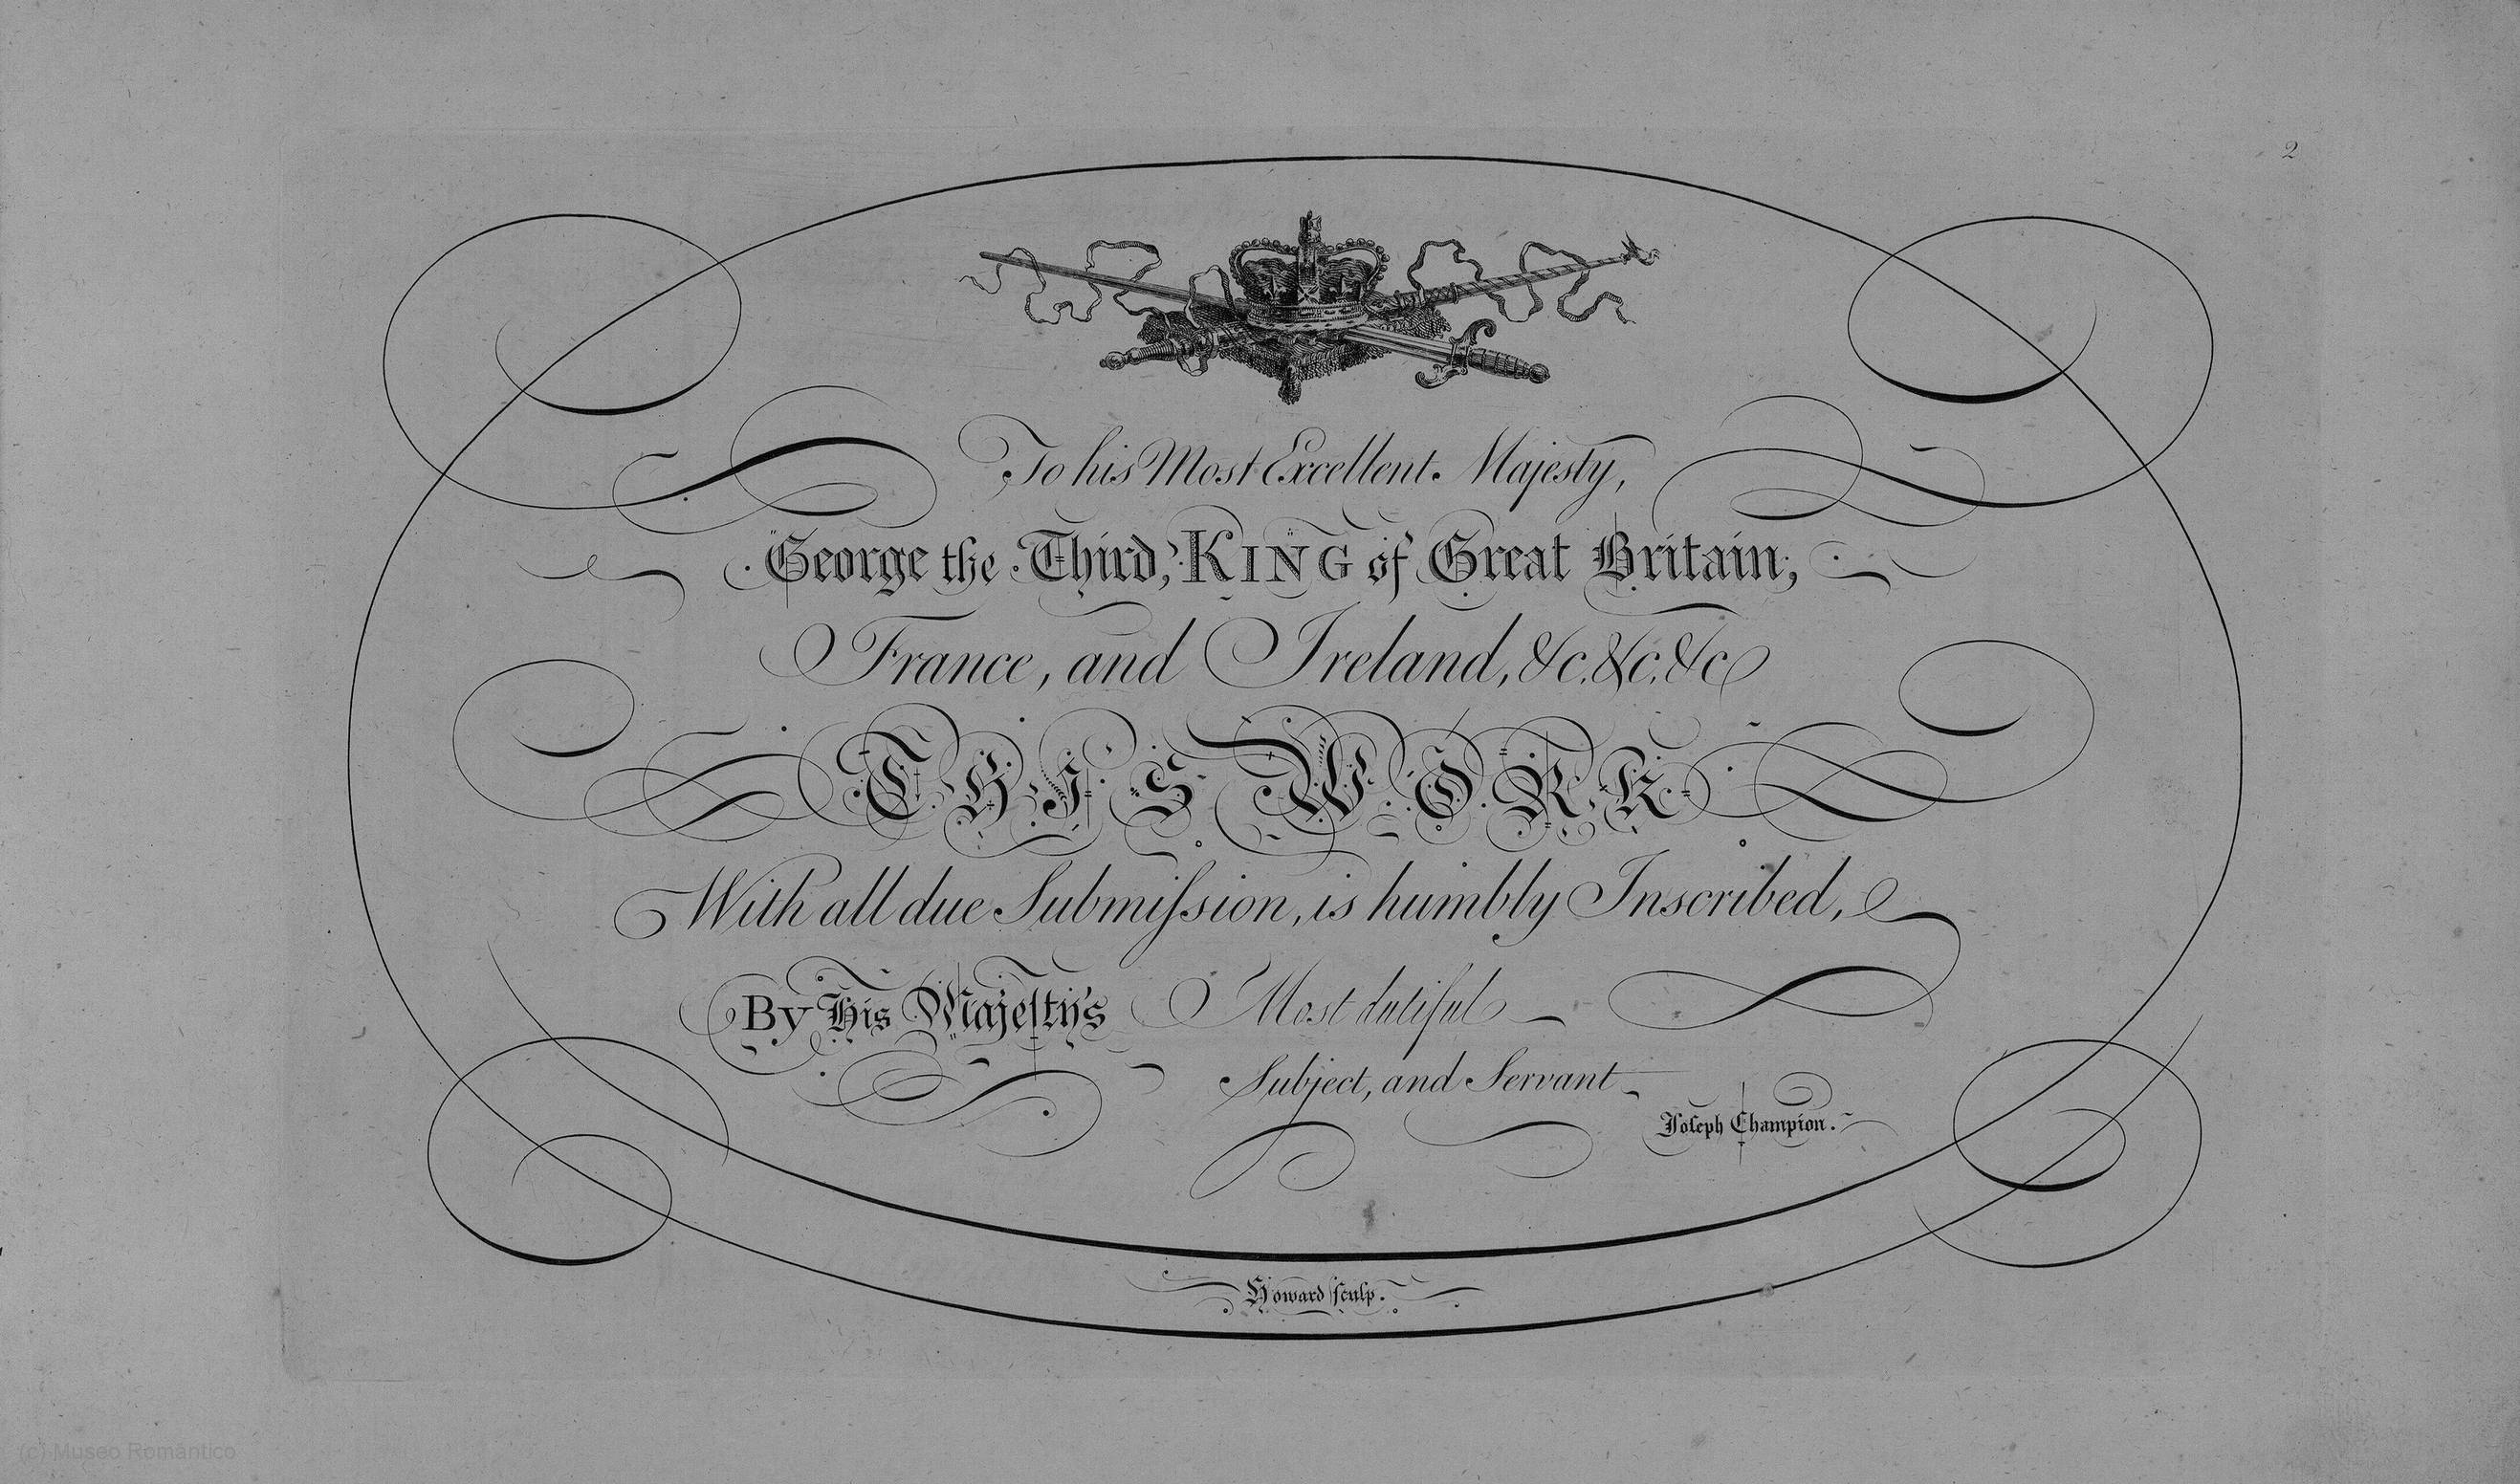 2
To his Most Excellent Majesty,
George the Third, KING of Great Britain,
France, and Ireland, &c. &c. &c
THIS WORK
With all due Submiſsion, is humbly Inscribed,
By His Majeſty's Most dutiful
Subject, and Servant
Joſeph Champion.
Howard ſculp.
(c) Museo Romántico